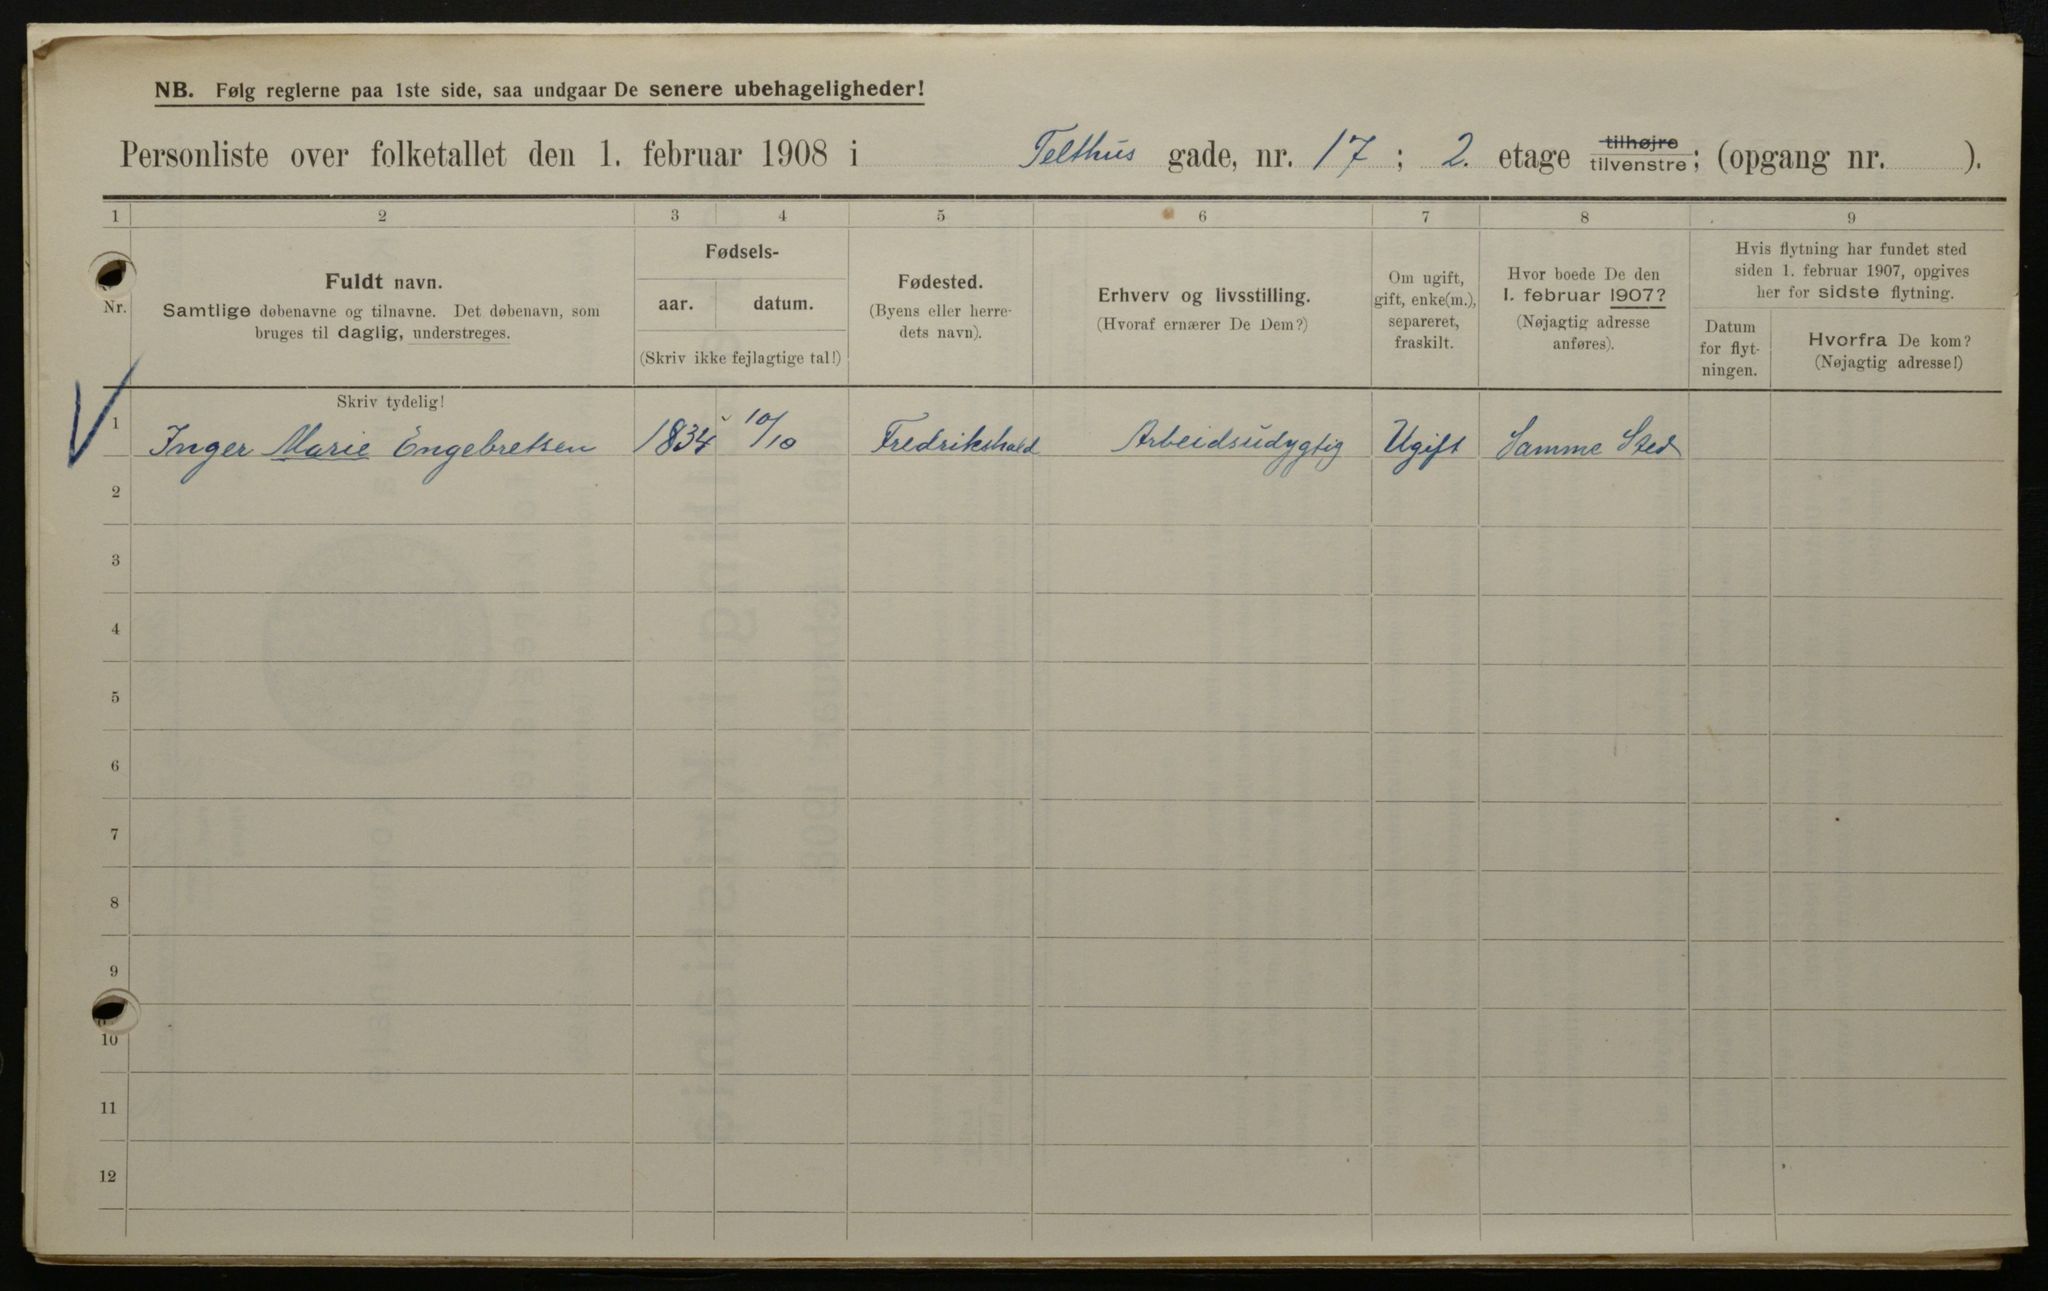 NB. Følg reglerne paa 1ste side, saa undgaar De senere ubehageligheder!
Personliste over folketallet den 1. februar 1908 i Telthus gade, nr. 17; 2. etage tilhøjre tilvenstre; (opgang nr. ).
1 2 3 4 5 6 7 8 9
Nr.
Fuldt navn.
Samtlige døbenavne og tilnavne. Det døbenavn, som
bruges til daglig, understreges.
Fødsels-
aar. datum.
(Skriv ikke fejlagtige tal!)
Fødested.
(Byens eller herre-
dets navn).
Erhverv og livsstilling.
(Hvoraf ernærer De Dem?)
Om ugift,
gift, enke(m.),
separeret,
fraskilt.
Hvor boede De den
1. februar 1907?
(Nøjagtig adresse
anføres).
Hvis flytning har fundet sted
siden 1. februar 1907, opgives
her for sidste flytning.
Datum
for flyt-
ningen.
Hvorfra De kom?
(Nøjagtig adresse!)
Skriv tydelig!
1 Inger Marie Engebretsen 1834 10/10 Fredrikshald Arbeidsudygtig Ugift Samme Sted
2
3
4
5
6
7
8
9
10
11
12